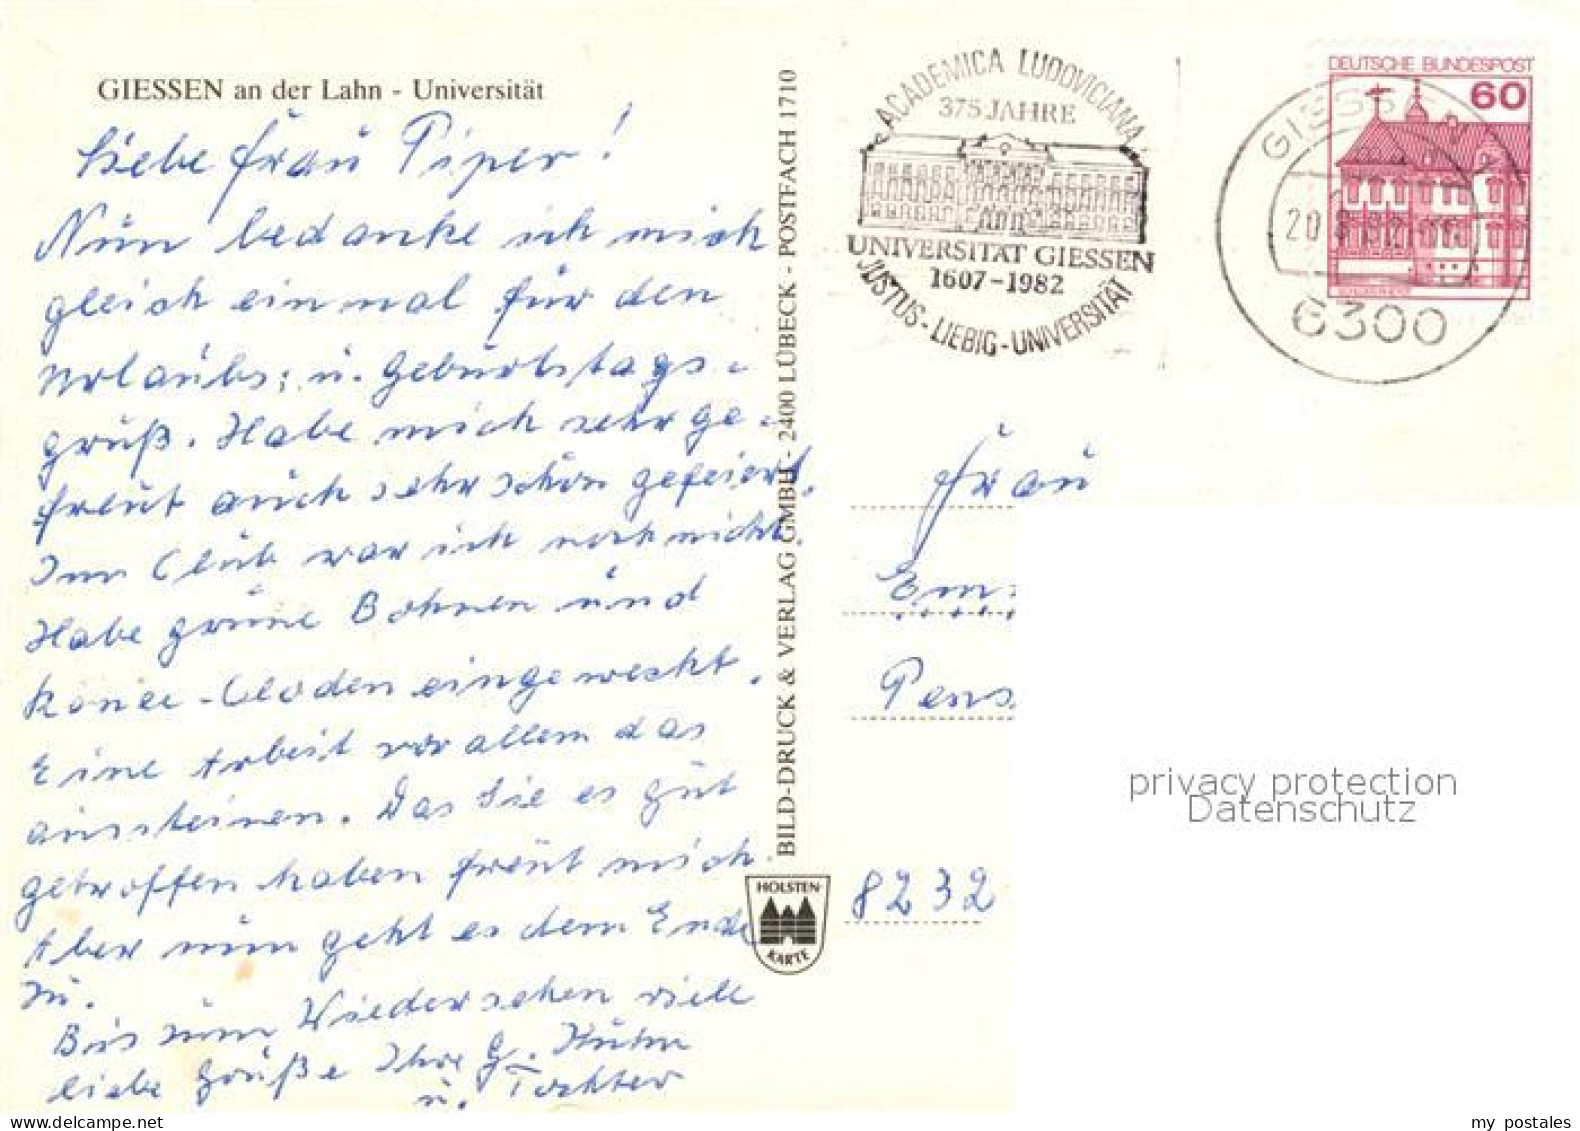 GIESSEN an der Lahn - Universität
Liebe Frau Piper!
Nun bedanke ich mich
gleich einmal für den
Urlaubs; u. Geburtstags-
gruß. Habe mich sehr ge-
freut auch sehr schön gefeiert.
Im Club war ich noch nicht.
Habe grüne Bohnen und
eingeweckt.
Eine Arbeit vor allem das
aussteinen. Das Sie es gut
getroffen haben freut mich.
Aber nun geht es dem Ende
zu.
Bis zum Wiedersehen viele
liebe Grüße Ihre G. Kuhn
u. Tochter
BILD-DRUCK & VERLAG GMBH - 2400 LÜBECK - POSTFACH 1710
HOLSTEN-
KARTE
ACADEMICA LUDOVICIANA
375 JAHRE
UNIVERSITÄT GIESSEN
1607-1982
JUSTUS-LIEBIG-UNIVERSITÄT
DEUTSCHE BUNDESPOST
60
GIESSEN
6300
Frau
Em
Pens
8232
privacy protection
Datenschutz
www.delcampe.net
my postales